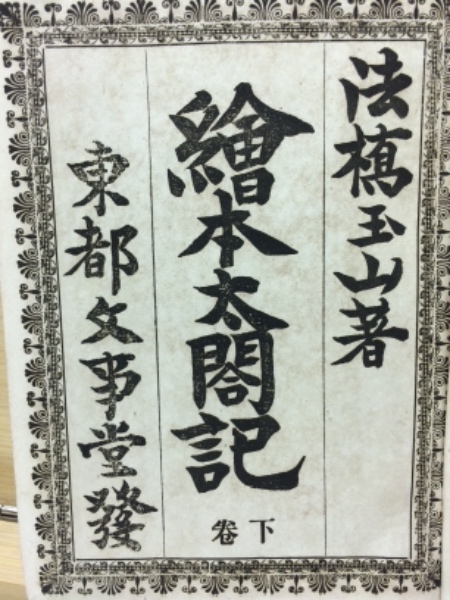 法橋玉山著
繪本太閤記
下卷
東都文事堂發